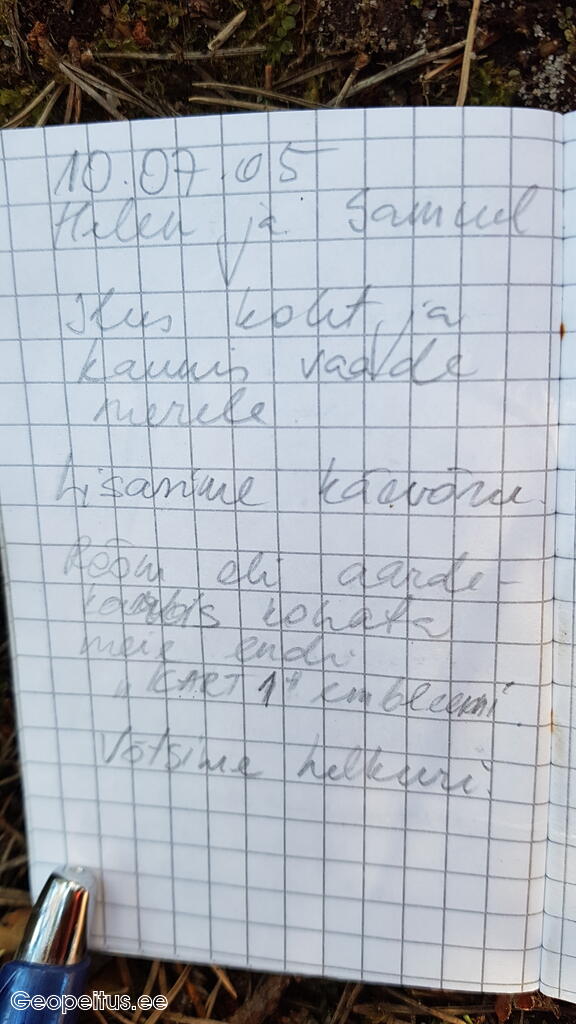 10.07.05
Helen ja Samuel
Ilus koht ja
kaunis vaade
merele
Lisasime käevõru.
Rõõm oli aarde-
karbis kohata
meie endi
"KART 1" embleemi.
Võtsime helkuri.
Geopeitus.ee